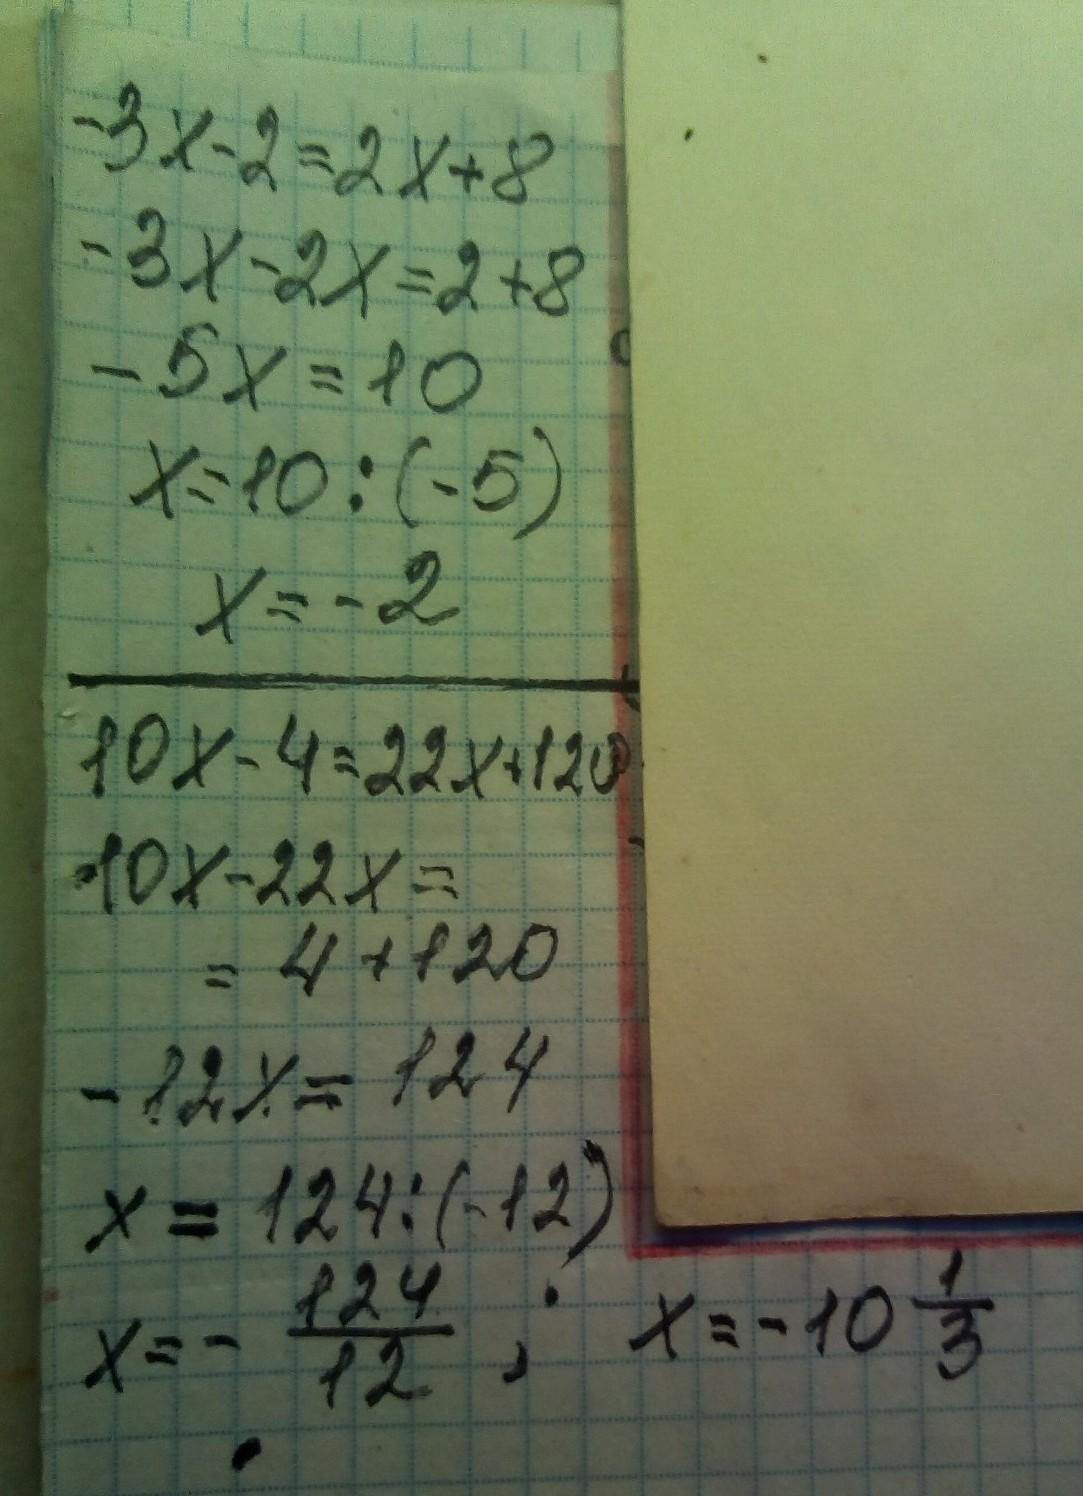 -3x-2=2x+8
-3x-2x=2+8
-5x=10
x=10:(-5)
x=-2
10x-4=22x+120
10x-22x=
=4+120
-12x=124
x=124:(-12)
x=-124/12; x=-10 1/3